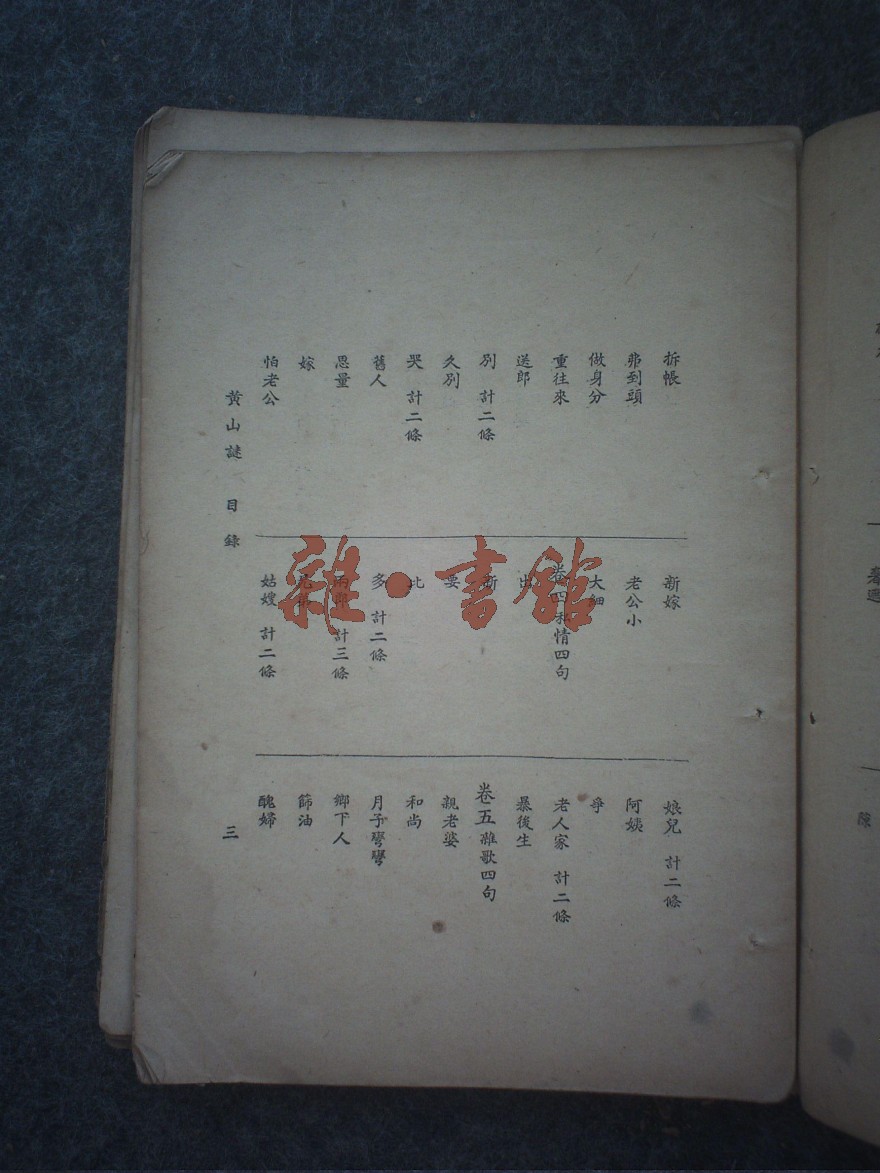 拆帳
弗到頭
做身分
重往來
送郎
別 計二條
久別
哭 計二條
舊人
思量
嫁
怕老公
新嫁
老公小
大細
卷四私情四句
出
多 計二條
兩郎 計三條
姑嫂 計二條
娘兒 計二條
阿姨
爭
老人家 計二條
暴後生
卷五 雜歌四句
親老婆
和尚
月子彎彎
鄉下人
篩油
醜婦
黃山謎 目錄 三
雜·書館